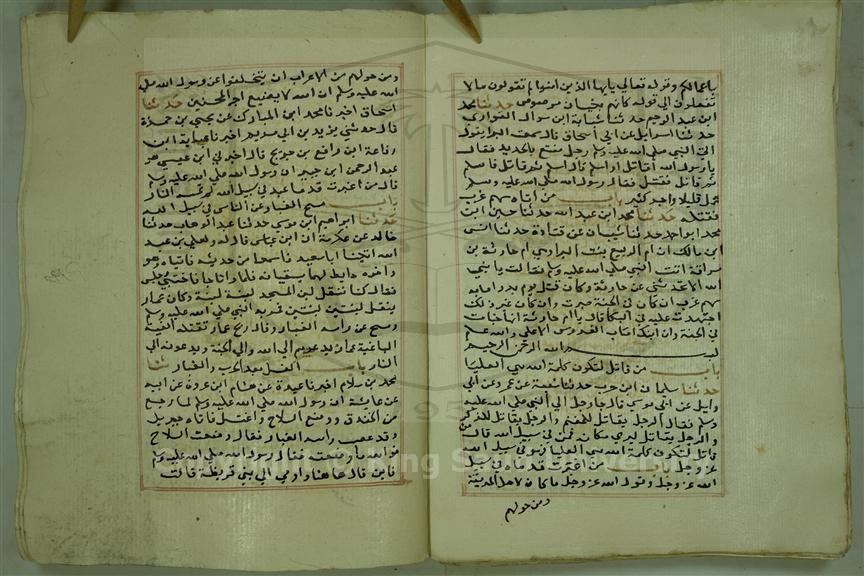 باعمالكم وقوله تعالي يايها الذين امنوا لم تقولون ما لا
تفعلون الي قوله كانهم بنيان مرصوص حدثنا محمد
ابن عبد الرحيم حدثنا شبابة ابن سوار الفزاري
حدثنا اسرائيل عن ابي اسحاق قال سمعت البرا يقول
اتي النبي صلي الله عليه وسلم رجل مقنع بالحديد فقال
يا رسول الله اقاتل او اسلم قال اسلم ثم قاتل فاسلم
ثم قاتل فقتل فقال رسول الله صلي الله عليه وسلم
عمل قليلا واجر كثير باب من اتاه سهم غرب
فقتله حدثنا محمد ابن عبد الله حدثنا حسين ابن
محمد ابو احمد حدثنا شيبان عن قتادة حدثنا انس
ابن مالك ان ام الربيع بنت البرا وهي ام حارثة بن
سراقة اتت النبي صلي الله عليه وسلم فقالت يا نبي
الله الا تحدثني عن حارثة وكان قتل يوم بدر اصابه
سهم غرب ان كان في الجنة صبرت وان كان غير ذلك
اجتهدت عليه في البكا قال يا ام حارثة انها جنات
في الجنة وان ابنك اصاب الفردوس الاعلي والله اعلم
بسم الله الرحمن الرحيم
باب من قاتل لتكون كلمة الله هي العليا
حدثنا سليمان ابن حرب حدثنا شعبة عن عمرو عن ابي
وايل عن ابي موسي قال جا رجل الي النبي صلي الله عليه
وسلم فقال الرجل يقاتل للمغنم والرجل يقاتل للذكر
والرجل يقاتل ليري مكانه فمن في سبيل الله قال من
قاتل لتكون كلمة الله هي العليا فهو في سبيل الله
عز وجل باب من اغبرت قدماه في سبيل
الله عز وجل وقول الله عز وجل ما كان لاهل المدينة
ومن حولهم
ومن حولهم من الاعراب ان يتخلفوا عن رسول الله صلي
الله عليه وسلم ان الله لا يضيع اجر المحسنين حدثنا
اسحاق اخبرنا محمد ابن المبارك عن يحيي بن حمزة
قال حدثني يزيد بن ابي مريم اخبرنا عباية ابن
رفاعة ابن رافع بن خديج قال اخبرني ابو عيسي هو
عبد الرحمن ابن جبر ان رسول الله صلي الله عليه وسلم
قال من اغبرت قدما عبد في سبيل الله النار
باب مسح الغبار عن الناس في سبيل الله
حدثنا ابراهيم ابن موسي حدثنا عبد الوهاب حدثنا
خالد عن عكرمة ان ابن عباس قال له ولعلي بن عبد
الله ايتيا ابا سعيد فاسمعا من حديثه فاتياه وهو
واخوه حايط لهما يسقيانه فلما راانا جا فاحتبي وجلس
فقال كنا ننقل لبن المسجد لبنة لبنة وكان عمار
ينقل لبنتين لبنتين فمر به النبي صلي الله عليه وسلم
ومسح عن راسه الغبار وقال ويح عمار تقتله الفية
الباغية عمار يدعوهم الي الله والي الجنة ويدعونه الي
النار باب الغسل بعد الحرب والغبار ثنا
محمد بن سلام اخبرنا عبدة عن هشام ابن عروة عن ابيه
عن عايشة ان رسول الله صلي الله عليه وسلم لما رجع
من الخندق ووضع السلاح واغتسل فاتاه جبريل
وقد عصب راسه الغبار فقال وضعت السلاح
فو الله ما وضعته فقال رسول الله صلي الله عليه وسلم
فاين قال هاهنا واومي الي بني قريظة قالت